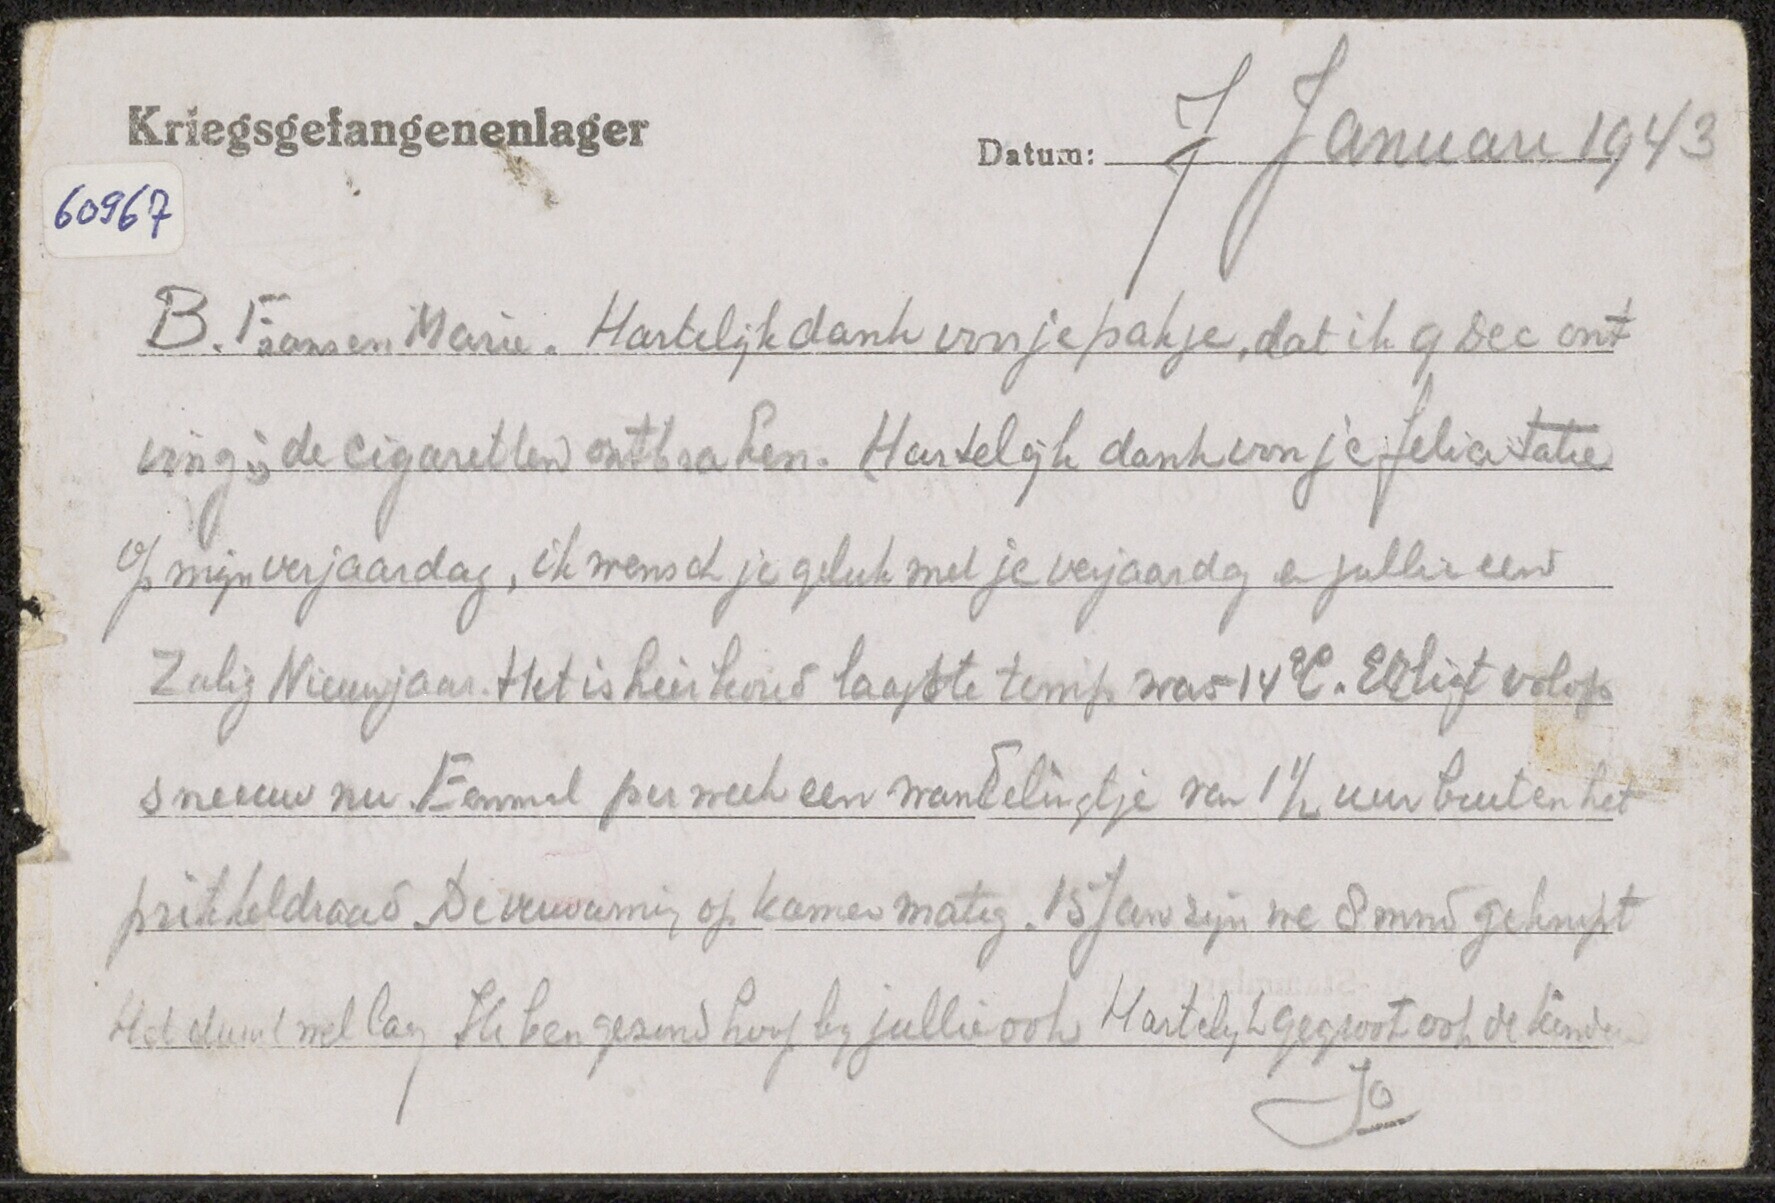 Kriegsgefangenenlager
Datum: 7 Januari 1943
60967
B. Frans en Marie. Hartelijk dank voor je pakje, dat ik 9 Dec ont
ving; de cigaretten ontbraken. Hartelijk dank voor je felicitatie
op mijn verjaardag, ik wensch je geluk met je verjaardag en jullie een
Zalig Nieuwjaar. Het is hier koud laagste temp. was -14 °C. Er ligt volop
sneeuw nu. Eenmal per week een wandelingtje van 1 1/2 uur buiten het
prikkeldraad. De verwarming op kamer matig. 15 Jan zijn we 8 mnd geknipt
Het duurt wel lang Ik ben gezond hoop bij jullie ook Hartelijk gegroet ook de kinderen
Jo